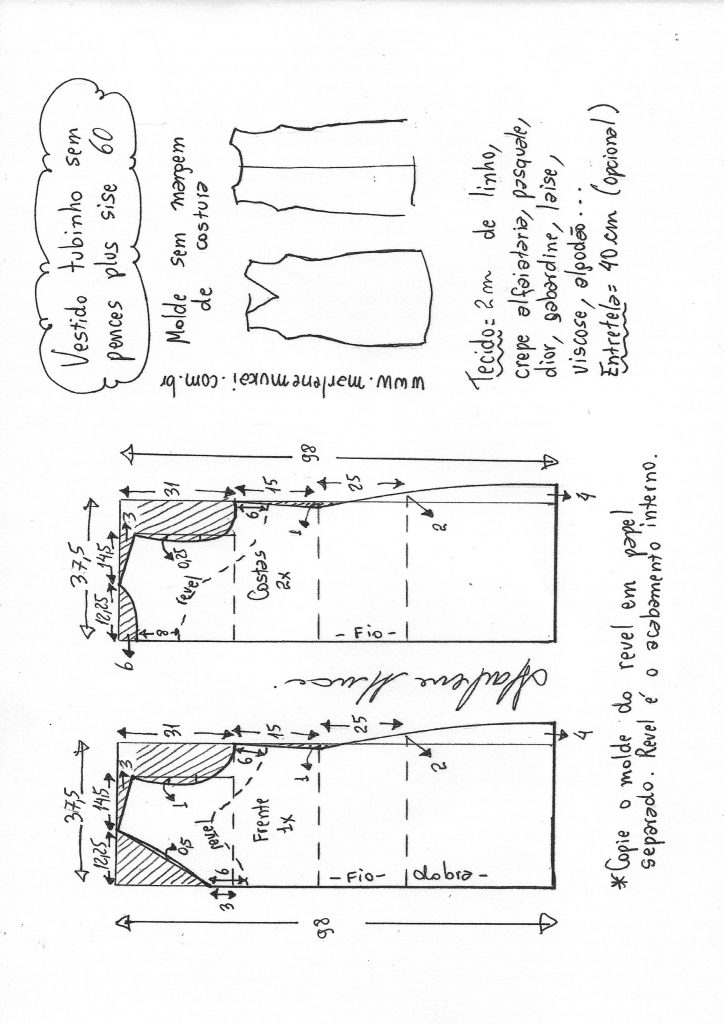 Vestido tubinho sem
pences plus sise 60
Molde sem margem
de costura
www.marlenemukai.com.br
Tecido = 2m de linho,
crepe alfaiataria, pasquale,
dior, gabardine, laise,
viscose, algodão...
Entretela = 40 cm (opcional)
37,5
12,25
14,5
3
31
15
25
98
6
8
0,25
revel
6
1
2
4
Costas
2x
- Fio -
Marlene Mukai
37,5
12,25
14,5
3
31
15
25
98
1
0,5
revel
6
6
3
1
2
4
Frente
1x
- Fio -
dobra -
*Copie o molde do revel em papel
separado. Revel é o acabamento interno.